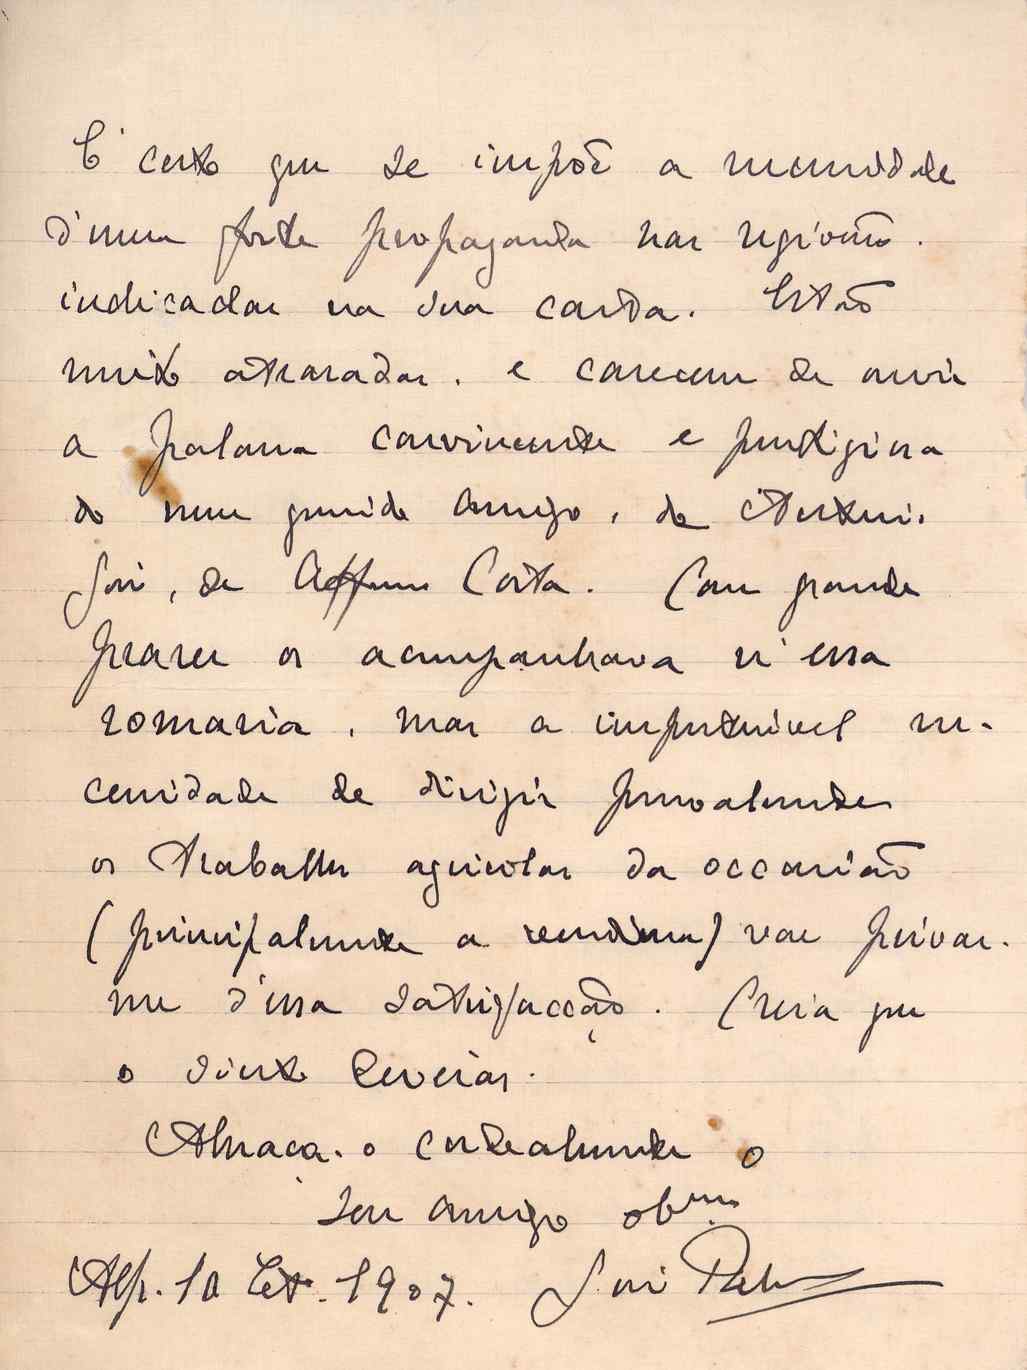 É certo que se impõe a necessidade
d'uma forte propaganda nas regiões
indicadas na sua carta. Estão
muito atrasadas, e carecem de ouvir
a palavra convincente e prestigiosa
do meu grande amigo, de Antonio
José, de Affonso Costa. Com grande
prazer os acompanhava n'essa
romaria, mas a impreterivel ne-
cessidade de dirigir pessoalmente
os trabalhos agricolas da occasião
(principalmente a vendima) vae privar-
me d'essa satisfacção. Creia que
o sinto deveras.
Abraça-o cordealmente o
seu amigo obmo
Alp. 10 Set. 1907. José